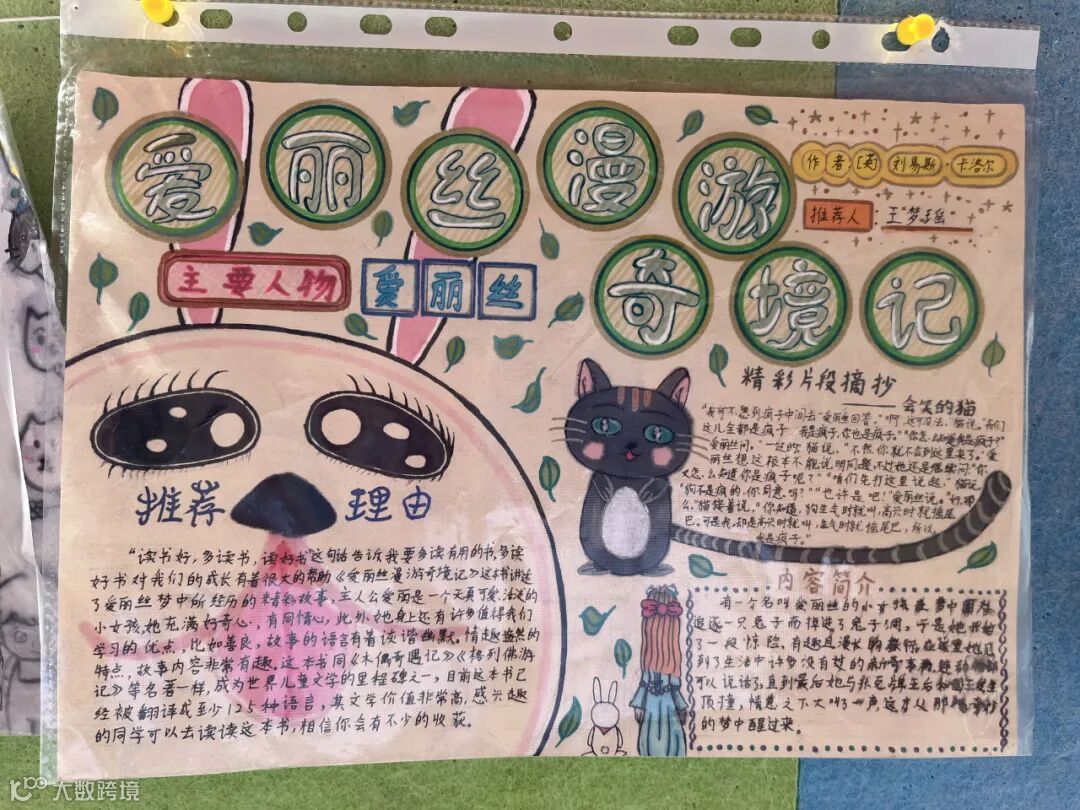 爱丽丝漫游
奇境记
作者:[英]刘易斯·卡洛尔
推荐人:王梦瑶
主要人物 爱丽丝
精彩片段摘抄
——会笑的猫
"我可不想到疯子中间去"爱丽丝回答。"啊,这可没法,"猫说,"我们
这儿全都是疯子,我是疯子,你也是疯子。""你怎么知道我是疯子?"
爱丽丝问。"一定的"猫说,"不然你就不会到这里来了。"爱
丽丝想这根本不能说明问题,不过她还是继续问:"你
又怎么知道你是疯子呢?""咱们先打这里说起,"猫说,
"狗不是疯的,你同意吗?""也许是吧!"爱丽丝说。"好,那
么,"猫接着说,"你知道,狗生气时就叫,高兴时就摇尾
巴。可是我,却是高兴时就叫,生气时就摇尾巴,所以,
我是疯子。"
推荐理由
"读书好,多读书,读好书"这句话告诉我要多读有用的书,多读
好书对我们的成长有着很大的帮助《爱丽丝漫游奇境记》这本书讲述
了爱丽丝梦中所经历的精彩故事,主人公爱丽是一个天真可爱、活泼的
小女孩,她充满好奇心,有同情心,此外,她身上还有许多值得我们
学习的优点,比如善良,故事的语言有着诙谐幽默、情趣盎然的
特点,故事内容非常有趣。这本书同《木偶奇遇记》《格列佛游
记》等名著一样,成为世界儿童文学的里程碑之一,目前这本书已
经被翻译成至少125种语言,其文学价值非常高,感兴趣
的同学可以去读读这本书,相信你会有不少的收获。
内容简介
有一个名叫爱丽丝的小女孩在梦中因为
追逐一只兔子而掉进了兔子洞,于是她开始
了一段惊险、有趣且漫长的旅行,在这里她见
到了生活中许多没有的
可以说话了,直到最后她与扑克牌王后和国王发生
顶撞,情急之下大叫了一声,这才从
的梦中醒过来。
大数跨境